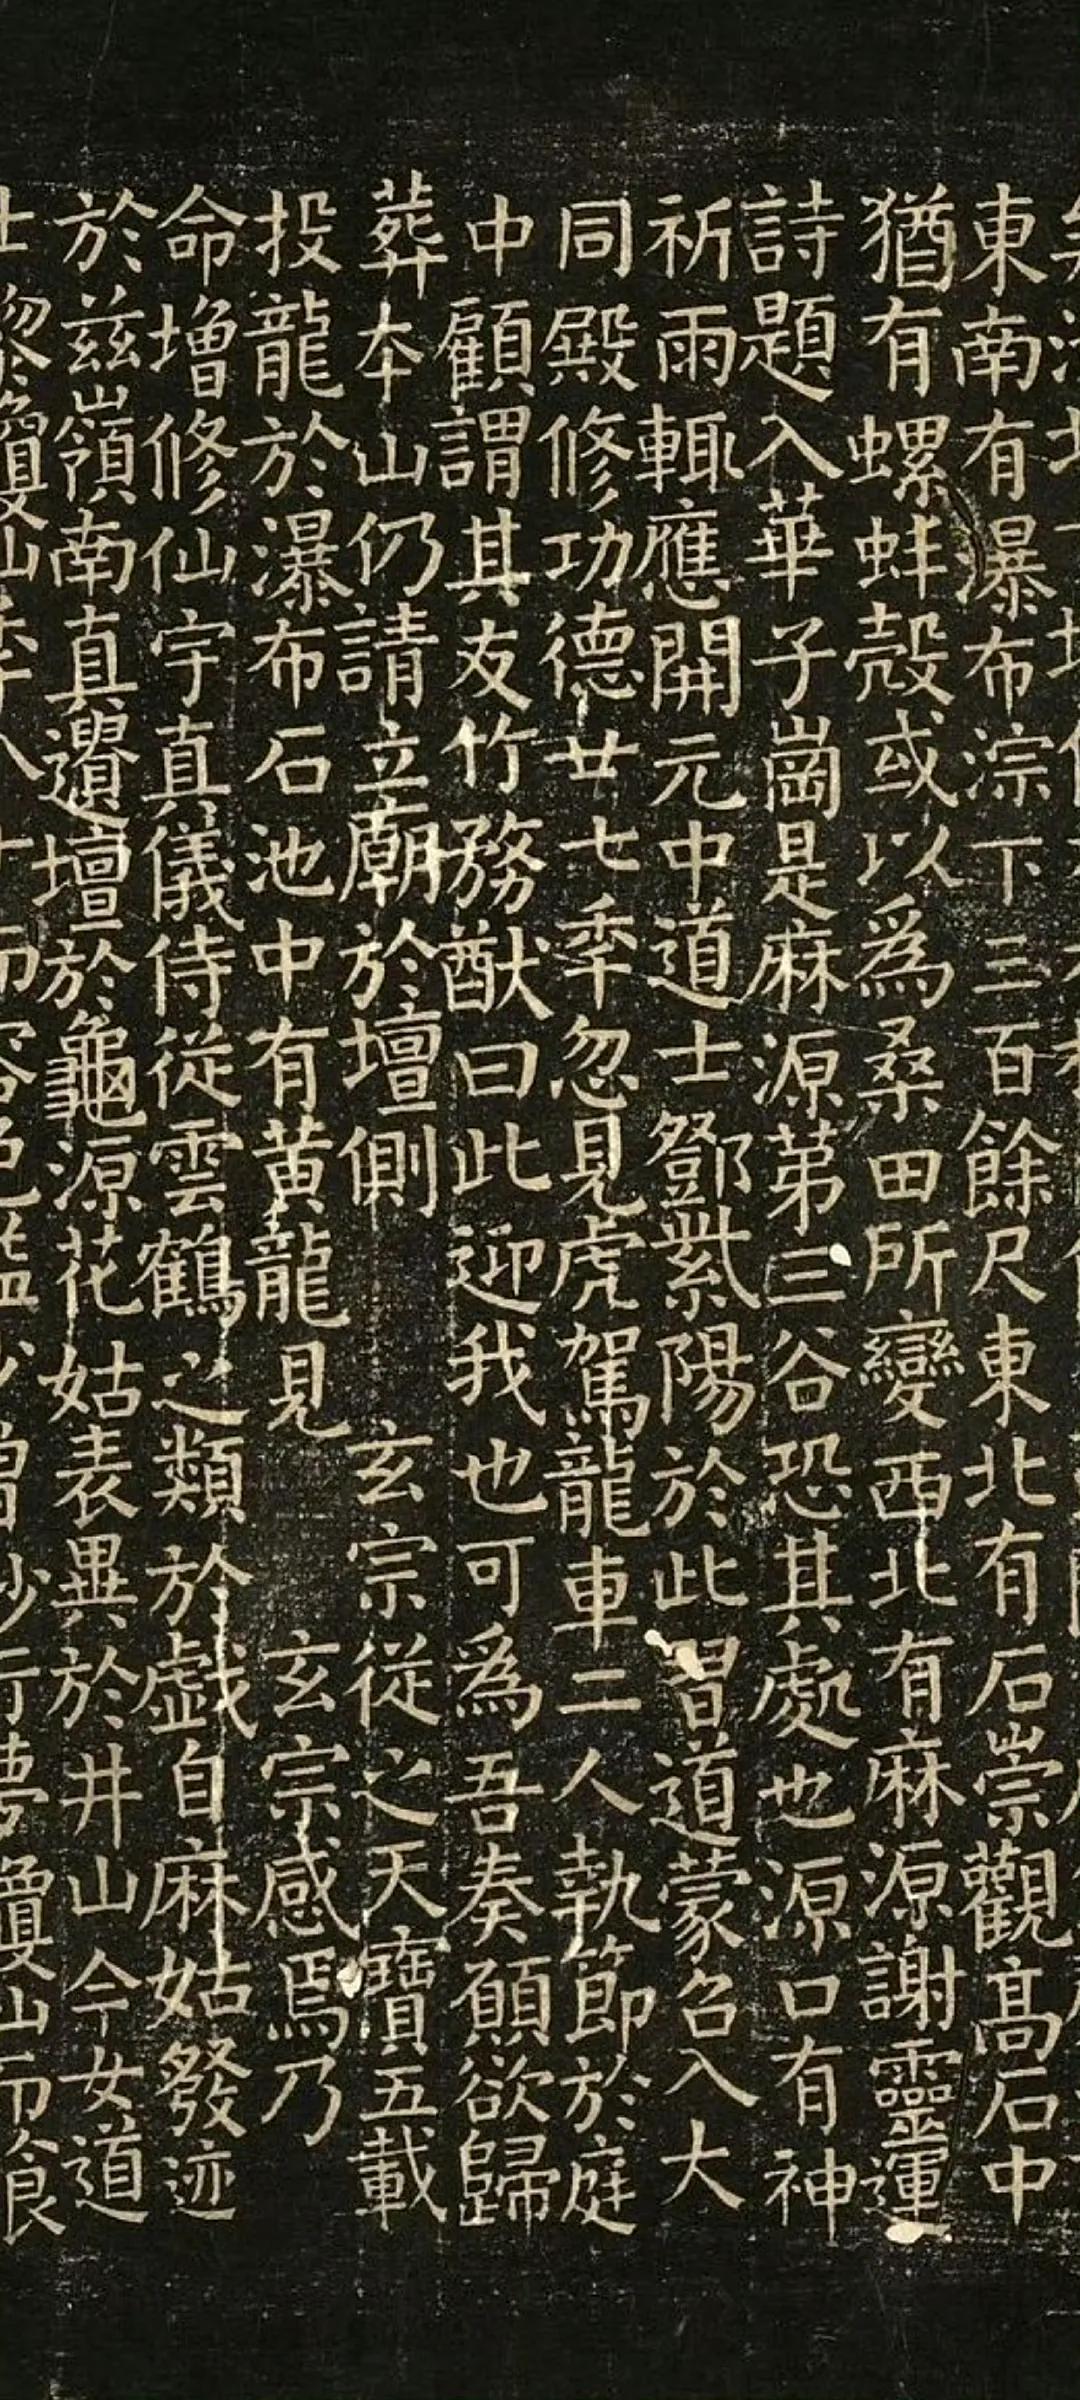 東南有瀑布淙下三百餘尺東北有石崇觀高石中
猶有螺蚌殼或以為桑田所變西北有麻源謝靈運
詩題入華子崗是麻源弟三谷恐其處也源口有神
祈雨輒應開元中道士鄧紫陽於此習道蒙召入大
同殿修功德廿七秊忽見虎駕龍車二人執節於庭
中顧謂其友竹務猷曰此迎我也可為吾奏願欲歸
葬本山仍請立廟於壇側玄宗從之天寶五載
投龍於瀑布石池中有黃龍見玄宗感焉乃
命增修仙宇真儀侍從雲鶴之類於戲自麻姑發迹
於茲嶺南真遺壇於龜源花姑表異於井山今女道